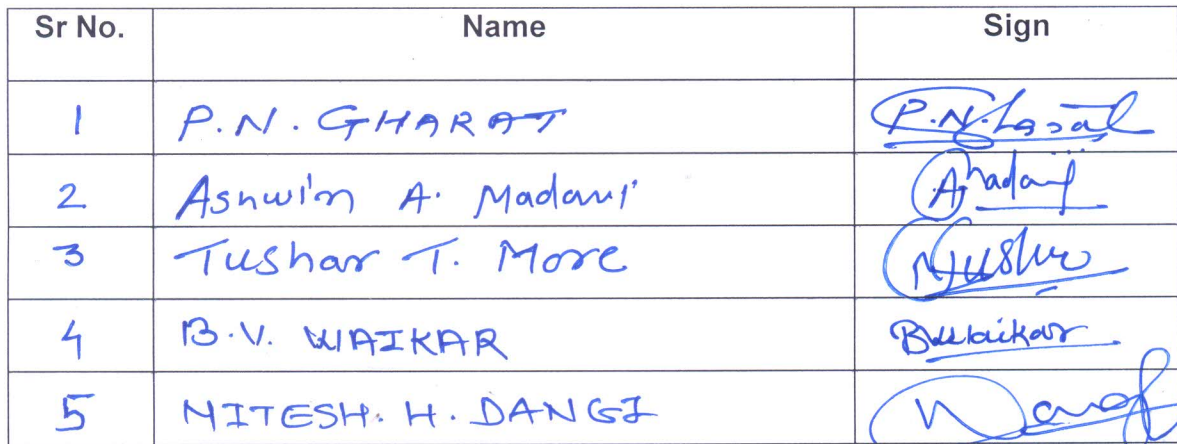 Sr No. Name Sign
1 P.N. GHARAT P.N.Gharat
2 Ashwin A. Madavi
3 Tushar T. More
4 B.V. WAIKAR BVWaikar
5 MITESH. H. DANGI